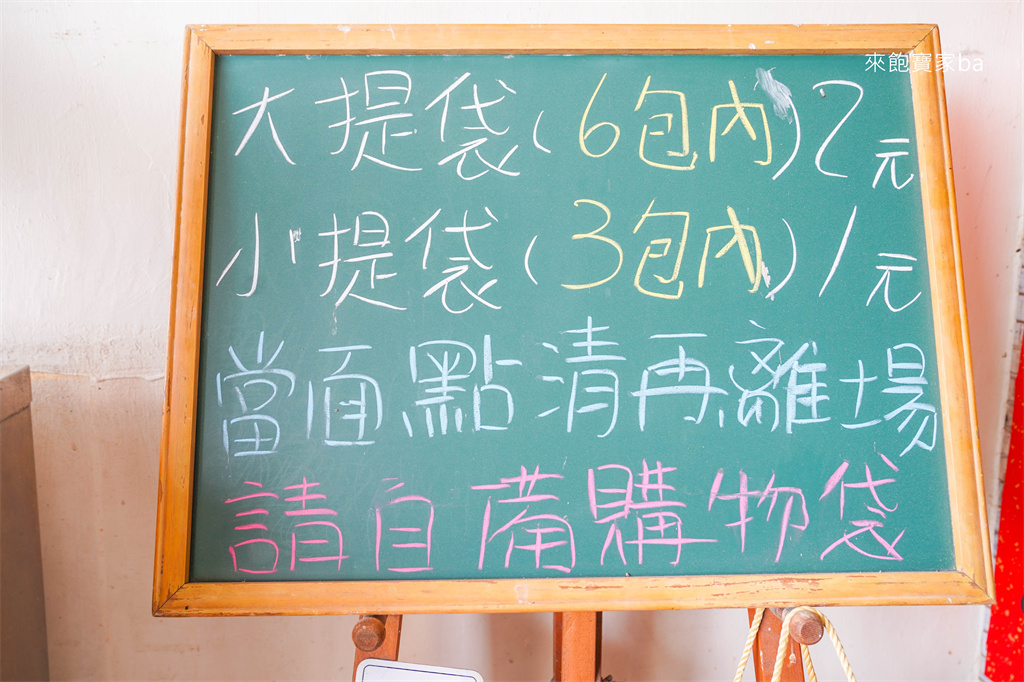 來飽寶家ba
大提袋(6包內)2元
小提袋(3包內)1元
當面點清再離場
請自備購物袋